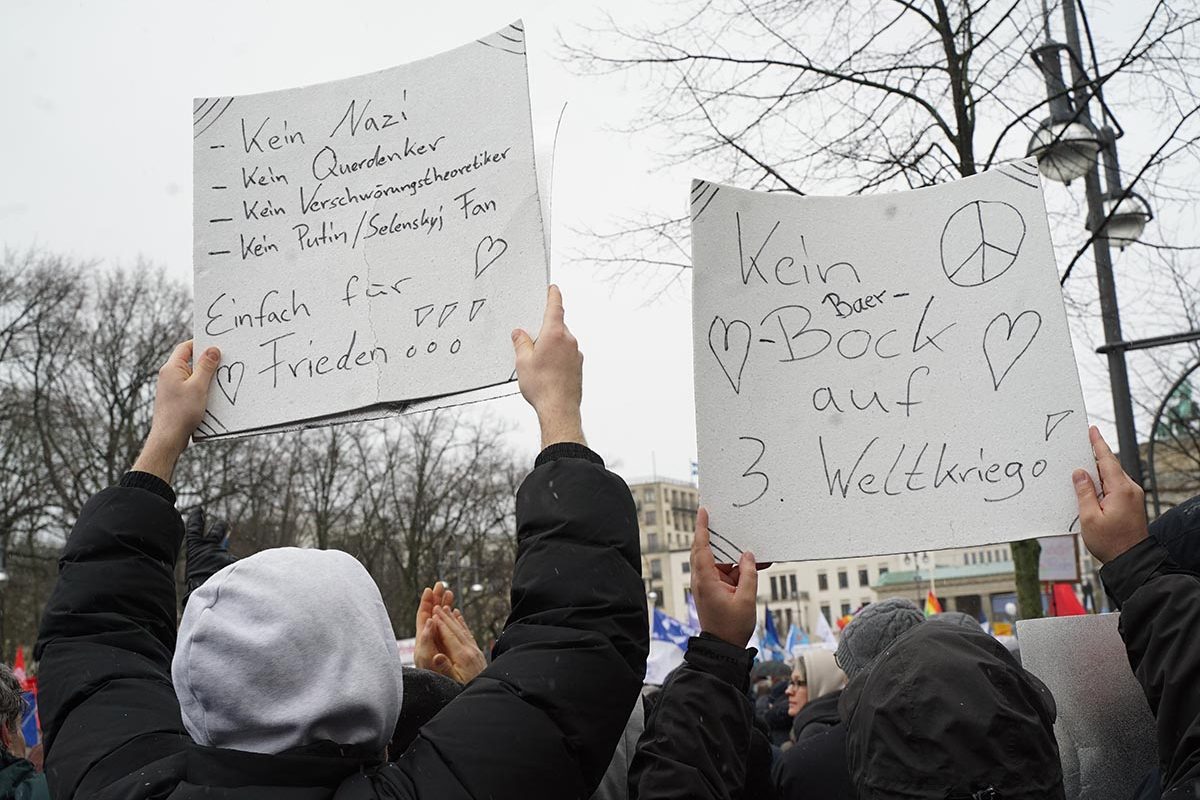 - Kein Nazi
- Kein Querdenker
- Kein Verschwörungstheoretiker
- Kein Putin/Selenskyj Fan
Einfach für
Frieden
Kein
Baer-
-Bock
auf
3. Weltkrieg